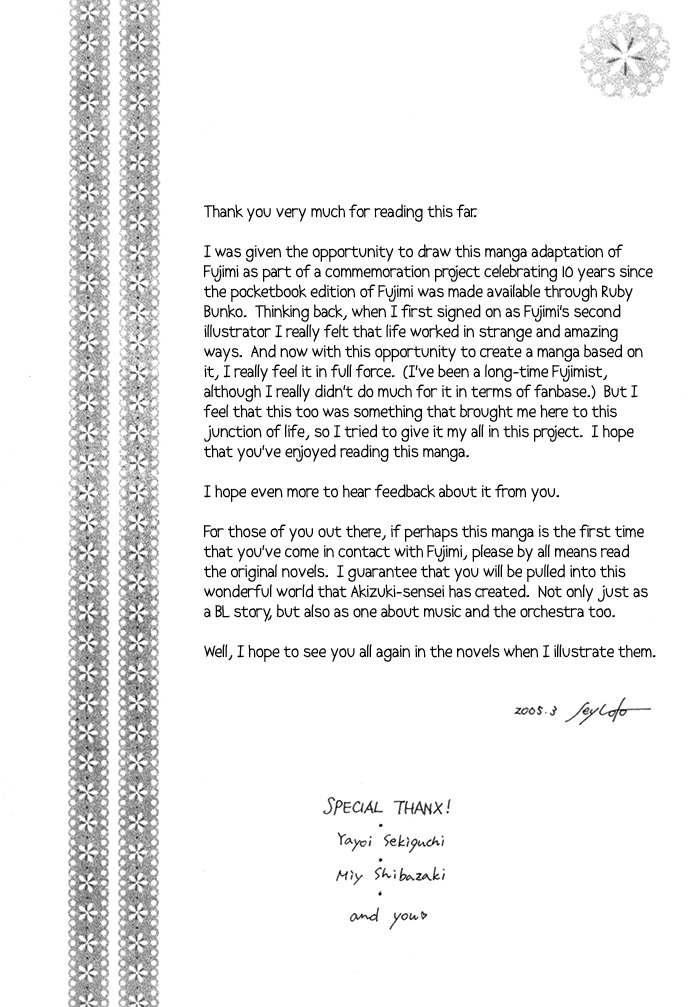 Thank you very much for reading this far.
I was given the opportunity to draw this manga adaptation of
Fujimi as part of a commemoration project celebrating 10 years since
the pocketbook edition of Fujimi was made available through Ruby
Bunko. Thinking back, when I first signed on as Fujimi's second
illustrator I really felt that life worked in strange and amazing
ways. And now with this opportunity to create a manga based on
it, I really feel it in full force. (I've been a long-time Fujimist,
although I really didn't do much for it in terms of fanbase.) But I
feel that this too was something that brought me here to this
junction of life, so I tried to give it my all in this project. I hope
that you've enjoyed reading this manga.
I hope even more to hear feedback about it from you.
For those of you out there, if perhaps this manga is the first time
that you've come in contact with Fujimi, please by all means read
the original novels. I guarantee that you will be pulled into this
wonderful world that Akizuki-sensei has created. Not only just as
a BL story, but also as one about music and the orchestra too.
Well, I hope to see you all again in the novels when I illustrate them.
2005.3
SPECIAL THANX!
Yayoi Sekiguchi
Miy Shibazaki
and you♥